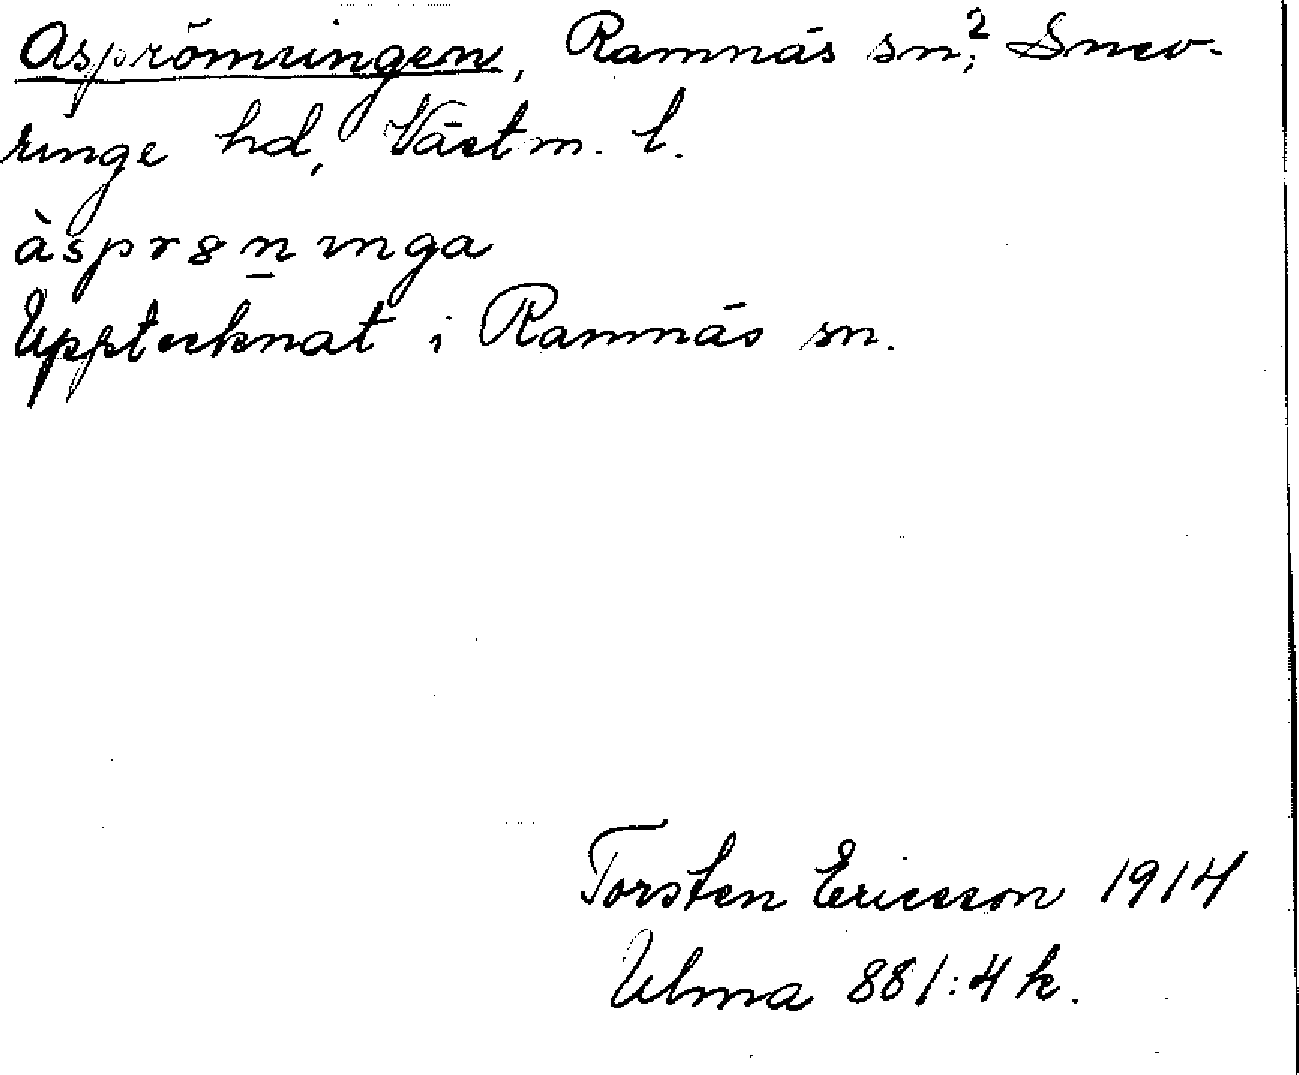 Asprönningen, Ramnäs sn,? Snev-
ringe hd, Västm. l.
àspr8n̲ ınga
Upptecknat i Ramnäs sn.
Torsten Ericsson 1914
Ulma 881:4 k.